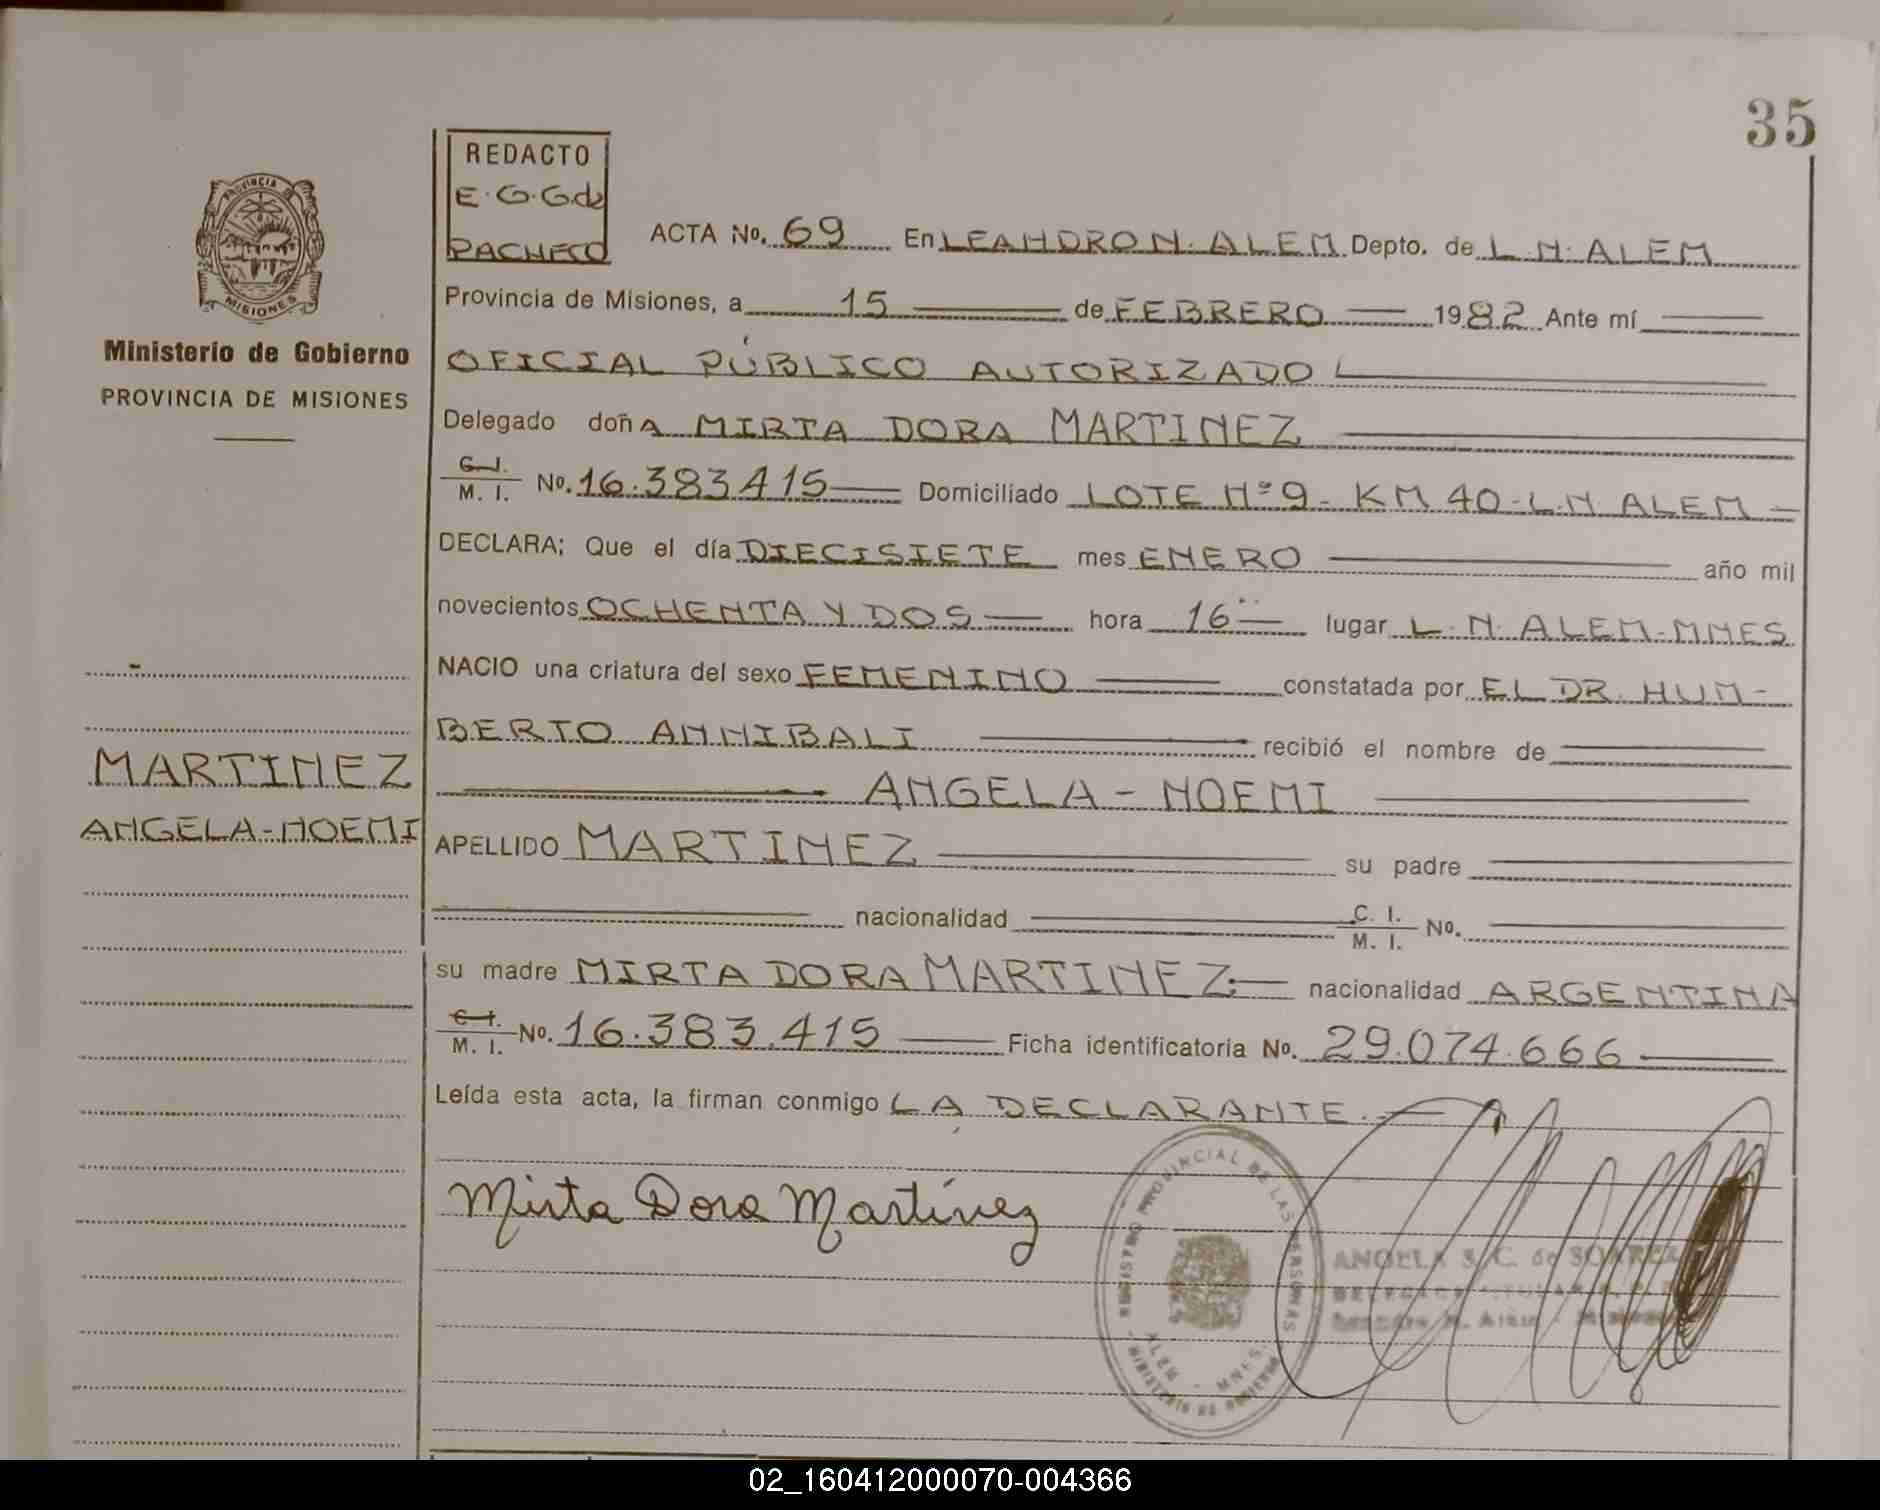 35
REDACTO
E.G.G.de
PACHECO
PROVINCIA DE
MISIONES
Ministerio de Gobierno
PROVINCIA DE MISIONES
ACTA No. 69 En LEANDRO N. ALEM Depto. de L.N. ALEM
Provincia de Misiones, a 15 de FEBRERO 1982 Ante mí
OFICIAL PÚBLICO AUTORIZADO
Delegado doñA MIRTA DORA MARTINEZ
C. I. / M. I. No. 16.383415 Domiciliado LOTE Nº 9 - KM 40 - L.N. ALEM -
DECLARA: Que el día DIECISIETE mes ENERO año mil
novecientos OCHENTA Y DOS hora 16 lugar L.N. ALEM-MNES.
NACIO una criatura del sexo FEMENINO constatada por EL DR. HUM-
BERTO ANNIBALI recibió el nombre de
ANGELA - NOEMI
MARTINEZ
ANGELA-NOEMI
APELLIDO MARTINEZ su padre
nacionalidad C. I. / M. I. No.
su madre MIRTA DORA MARTINEZ nacionalidad ARGENTINA
C. I. / M. I. No. 16.383.415 Ficha identificatoria No. 29.074.666
Leída esta acta, la firman conmigo LA DECLARANTE.
Mirta Dora Martínez
REGISTRO PROVINCIAL DE LAS PERSONAS
ALEM - MNES.
MINISTERIO DE GOBIERNO
ANGELA S. C. de SOAREZ
Leandro N. Alem - Misiones
02_160412000070-004366